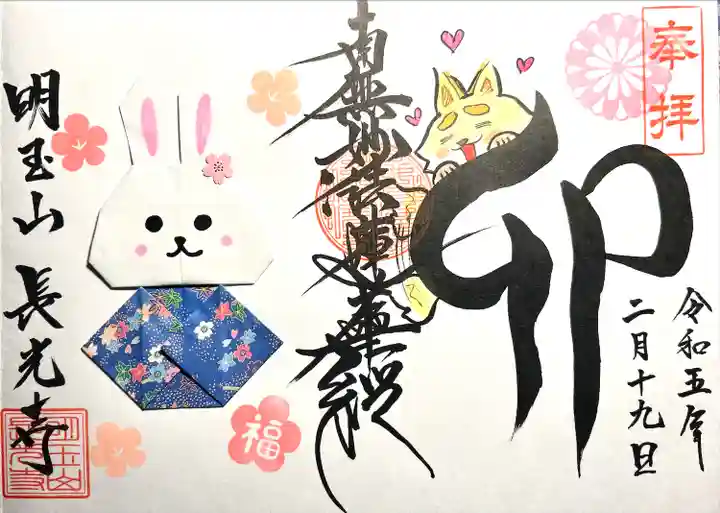 奉拝
卯
令和五年
二月十九日
南無妙法蓮華経
福
明玉山 長光寺